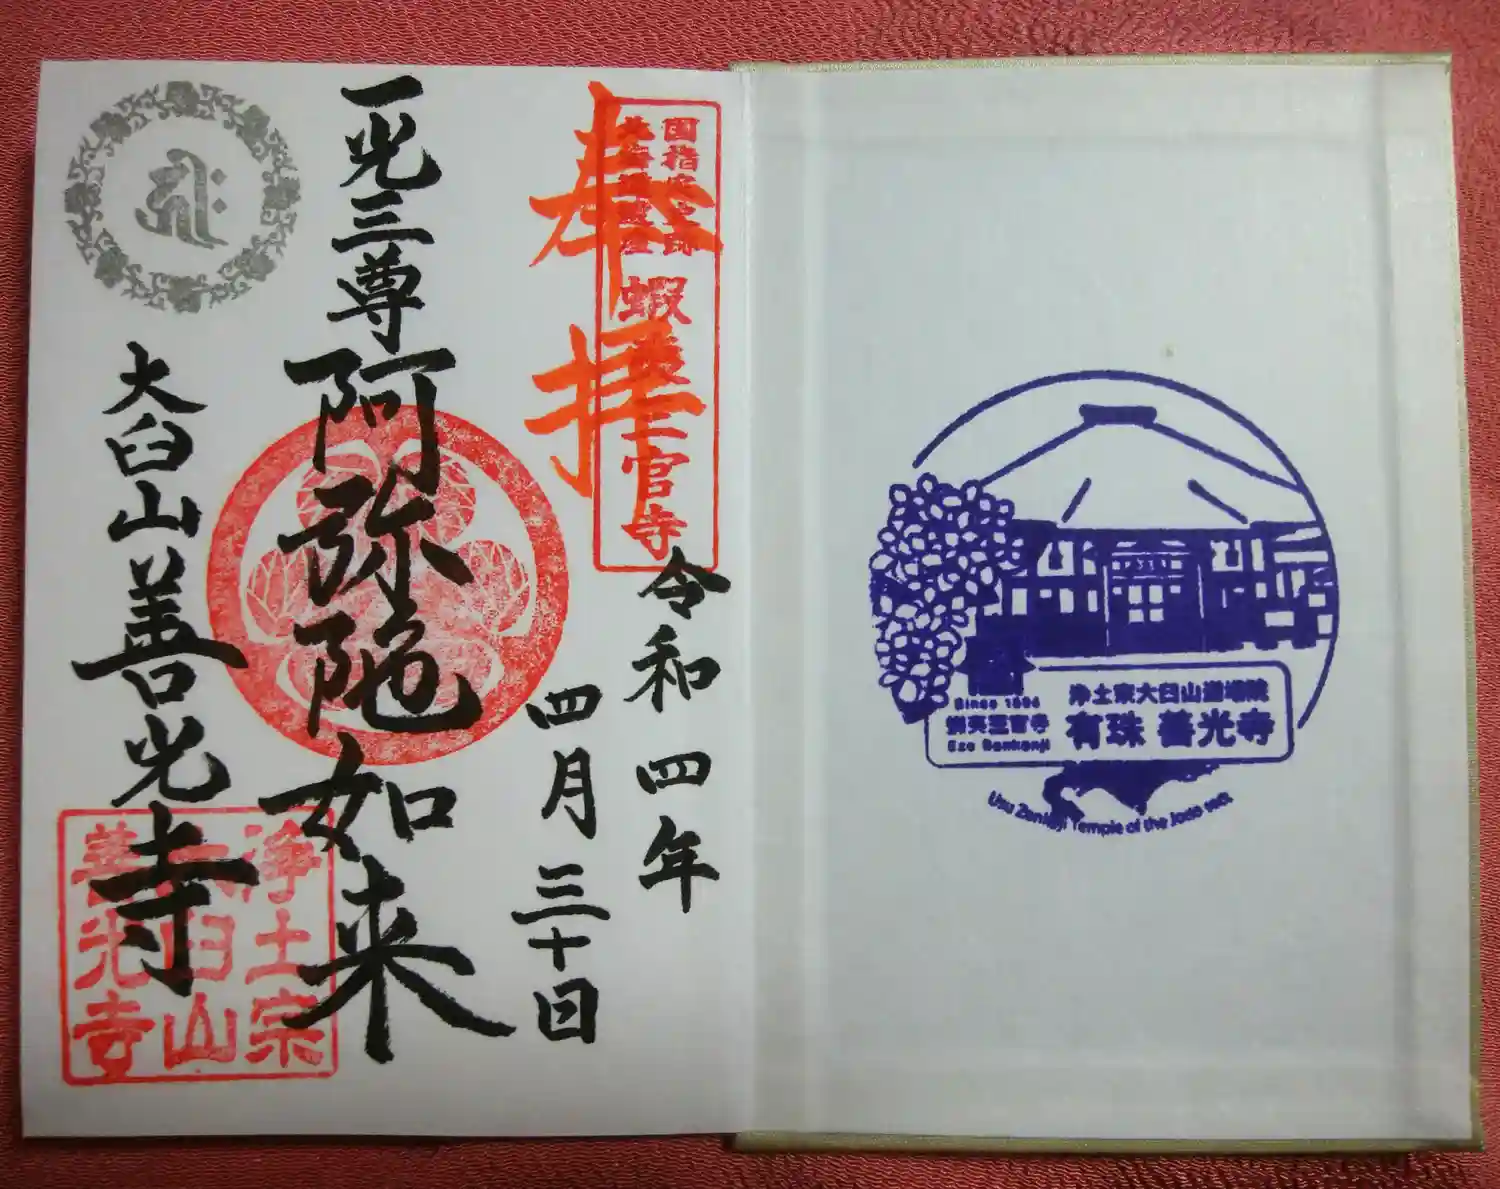 奉拝
国指定史跡
北海道遺産
蝦夷三官寺
令和四年
四月三十日
一光三尊
阿弥陀如来
大臼山
善光寺
浄土宗
大臼山
善光寺
Since 1804
蝦夷三官寺
Ezo Sankanji
浄土宗大臼山道場院
有珠 善光寺
Usu Zenkoji Temple of the Jodo sect.